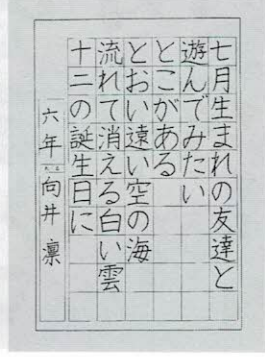 七月生まれの友達と
遊んでみたい
とこがある
とおい遠い空の海
流れて消える白い雲
十二の誕生日に
六年 向井 凛